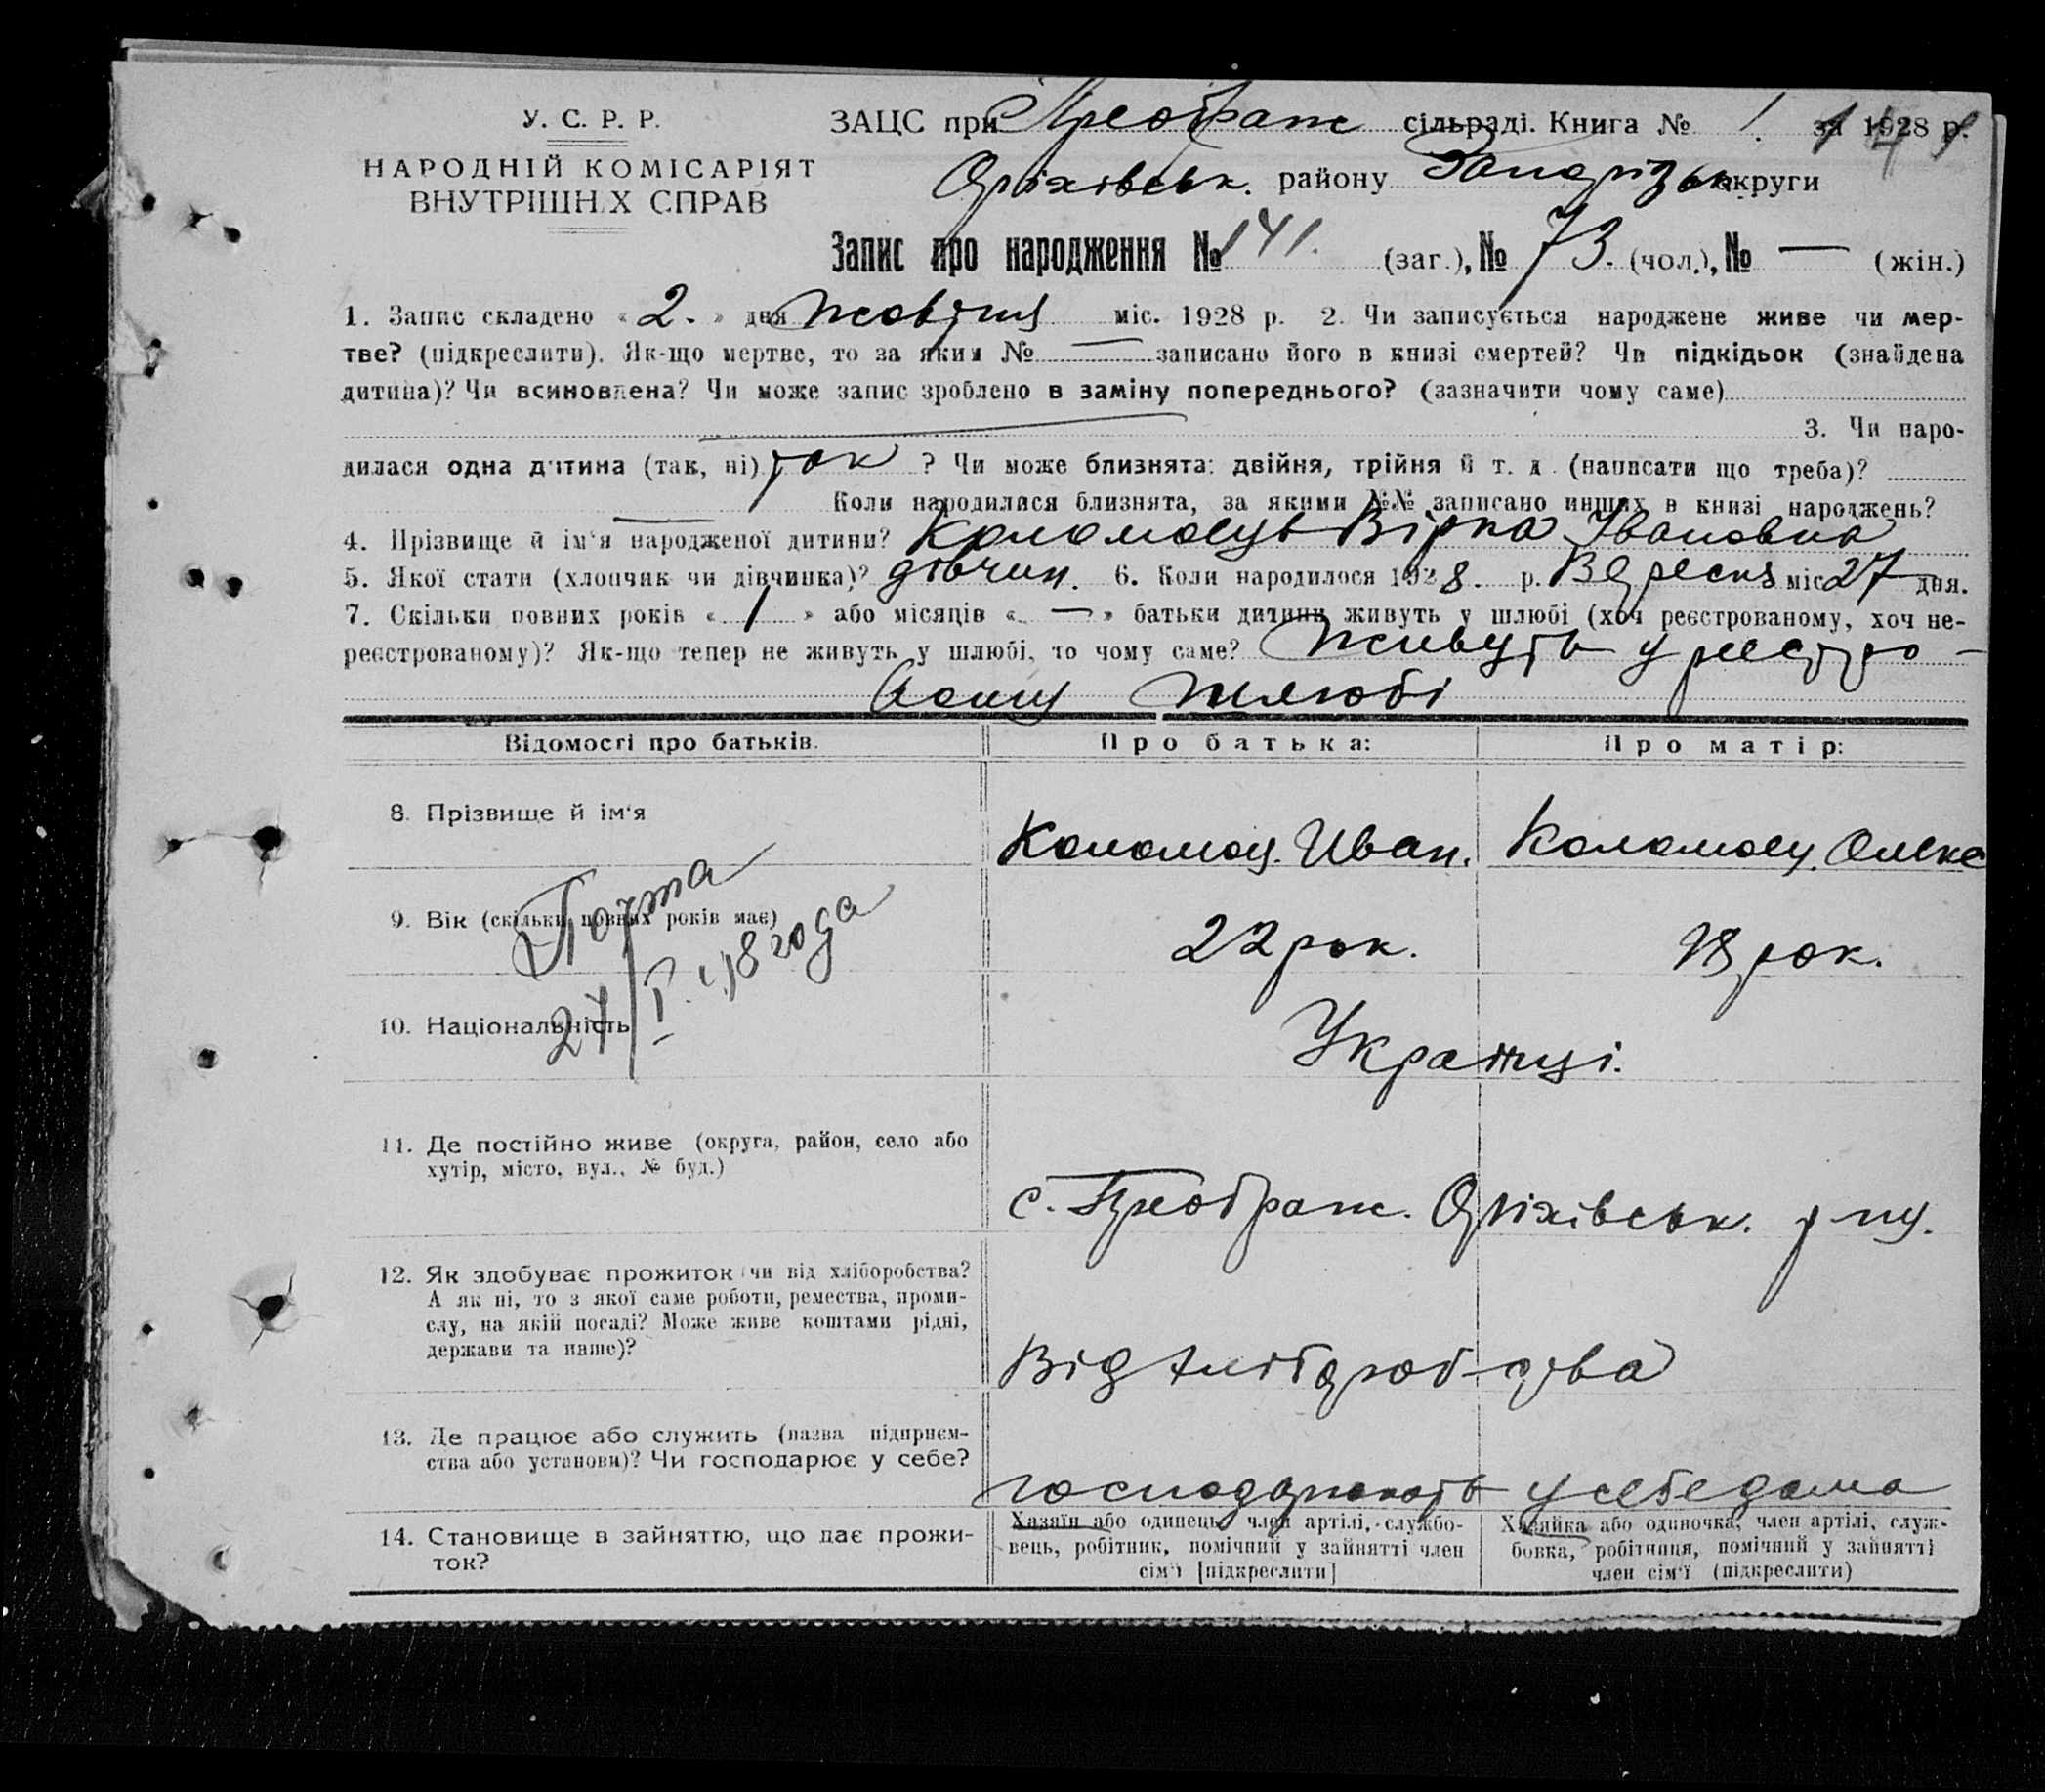 У. С. Р. Р.
НАРОДНІЙ КОМІСАРІЯТ
ВНУТРІШНІХ СПРАВ
ЗАЦС при Преображ сільраді. Книга № 1. за 1928 р.
Оріхівськ. району Запорізьк округи
Запис про народження № 141. (заг.), № 73. (чол.), № — (жін.)
1. Запис складено « 2. » дня жовтня міс. 1928 р. 2. Чи записується народжене живе чи мер-
тве? (підкреслити). Як-що мертве, то за яким № — записано його в книзі смертей? Чи підкідьок (знайдена
дитина)? Чи всиновлена? Чи може запис зроблено в заміну попереднього? (зазначити чому саме)
3. Чи наро-
дилася одна дитина (так, ні) так ? Чи може близнята: двійня, трійня й т. д. (написати що треба)?
— Коли народилися близнята, за якими №№ записано инших в книзі народжень?
4. Прізвище й ім'я народженої дитини? Коломоець Вірка Івановна
5. Якої стати (хлопчик чи дівчинка)? дівчин. 6. Коли народилося 1928. р. Вересня міс 27 дня.
7. Скільки повних років « 1 » або місяців « — » батьки дитини живуть у шлюбі (хоч реєстрованому, хоч не-
реєстрованому)? Як-що тепер не живуть у шлюбі, то чому саме? Живуть у реєстро-
ваному шлюбі
Відомості про батьків. Про батька: Про матір:
8. Прізвище й ім'я Коломоец. Иван. Коломоец. Олекс
9. Вік (скільки повних років має) 22 рок. 18 рок.
10. Національність Українці.
11. Де постійно живе (округа, район, село або
хутір, місто, вул., № буд.)
с. Преображ. Оріхівськ. р-ну.
12. Як здобуває прожиток (чи від хліборобства?
А як ні, то з якої саме роботи, ремества, проми-
слу, на якій посаді? Може живе коштами рідні,
держави та инше)?
Від хлібороб-ства
13. Де працює або служить (назва підприєм-
ства або установи)? Чи господарює у себе?
господарюють у себе дома
14. Становище в зайняттю, що дає прожи-
ток?
Хазяїн або одинець, член артілі, службо-
вець, робітник, помічний у зайнятті член
сім'ї [підкреслити]
Хазяйка або одиночка, член артілі, служ-
бовка, робітниця, помічний у зайнятті
член сім'ї (підкреслити)